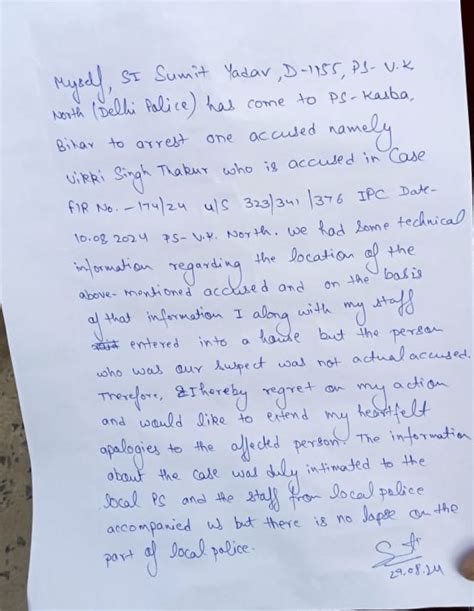 Myself, SI Sumit Yadav, D-1155, PS- V.K
North (Delhi Police) has come to PS- Kasba,
Bihar to arrest one accused namely
Vikki Singh Thakur who is accused in Case
FIR No. - 174/24 u/S 323/341/376 IPC Date-
10.08.2024 PS- V.K. North. We had some technical
information regarding the location of the
above-mentioned accused and on the basis
of that information I along with my staff
entered into a house but the person
who was our suspect was not actual accused.
Therefore, I hereby regret on my action
and would like to extend my heartfelt
apologies to the affected person. The information
about the case was duly intimated to the
local PS and the staff from local police
accompanied us but there is no lapse on the
part of local police.
29.08.24